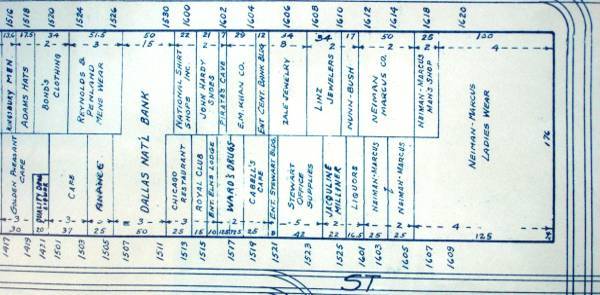 1516 1518 1520 1524 1526 1530 1600 1602 1604 1606 1608 1610 1612 1614 1618 1620
13.6 17.5 34 51.5 50 22 21 7 29 12 34 34 17 50 25 100
2 3 15 2 2 8 2 4 2 4
KINGSBURY MEN
ADAMS HATS
BOND'S
CLOTHING
REYNOLDS &
PENLAND
MENS WEAR
DALLAS NAT'L BANK
NATIONAL SHIRT
SHOPS INC.
JOHN HARDY
SHOES
PIRATE'S CAVE
E.M. KHAN CO.
ENT. CENT. BANK BLDG
ZALE JEWELRY
LINZ
JEWELERS
NUNN-BUSH
NEIMAN
MARCUS CO.
NEIMAN-MARCUS
MAN'S SHOP
NEIMAN-MARCUS
LADIES WEAR
176
GOLDEN PHEASANT
CAFE
QUALITY DRUG
LIQUOR
CAFE
FINANCE
CHICAGO
RESTAURANT
ROYAL CLUB
ENT. ELKS LODGE
WARD'S DRUGS
CABELL'S
CAFE
ENT. STEWART BLDG.
STEWART
OFFICE
SUPPLIES
JACQULINE
MILLINER
LIQUORS
NEIMAN-MARCUS
NEIMAN-MARCUS
3 3 3 3 5 2 2 4
30 20 37 25 25 50 25 15 10 12.5 17.5 25 8 42 22 16.5 25 25 125 24
1417 1419 1421 1501 1503 1505 1507 1511 1513 1515 1517 1519 1521 1523 1525 1601 1603 1605 1607 1609
ST